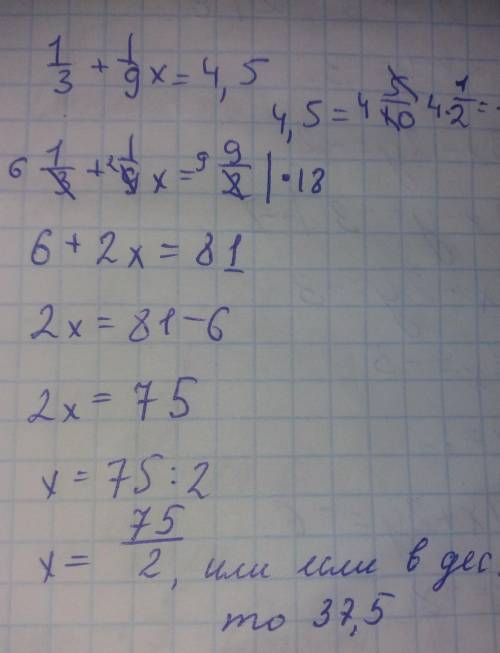 1/3 + 1/9 x = 4,5
4,5 = 4 5/10 4·1/2 =
6 1/3 + 2 1/9 x = 9 9/2 | · 18
6 + 2x = 81
2x = 81 - 6
2x = 75
x = 75 : 2
x = 75/2, или если в дес.
то 37,5